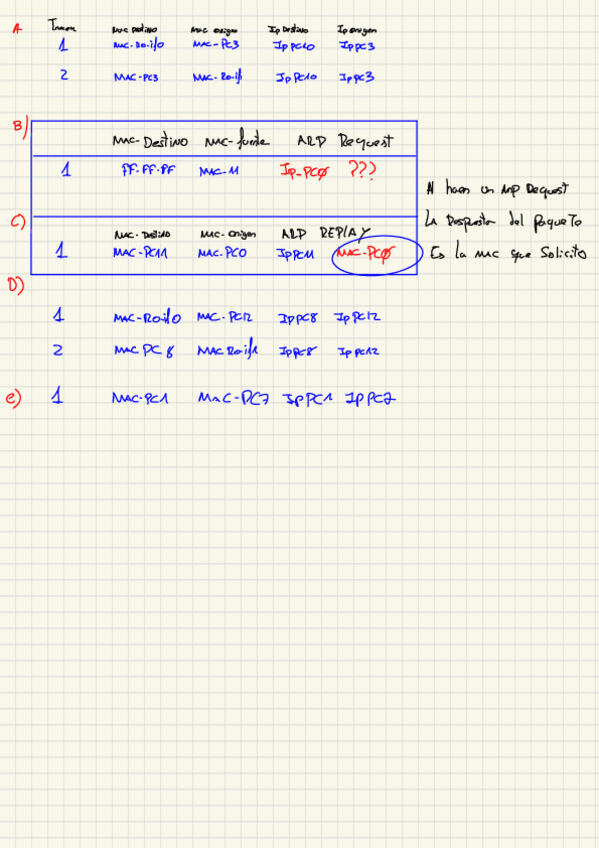 A Trama Mac Destino Mac origen Ip Destino Ip origen
1 MAC-Ro-i/0 MAC-PC3 Ip PC10 Ip PC3
2 MAC-PC3 MAC-Ro-i/1 Ip PC10 Ip PC3
B) MAC-Destino MAC-fuente ARP Request
1 FF.FF.FF MAC-11 Ip-PC0 ???
Al hacer un Arp Request
La Respuesta del paqueto
C) MAC-Destino MAC-origen ARP REPLAY
1 MAC-PC11 MAC-PC0 Ip PC11 MAC-PC0 Es la mac que Solicito
D)
1 MAC-Ro-i/0 MAC-PC12 Ip PC8 Ip PC12
2 MAC PC8 MAC Ro-i/1 Ip PC8 Ip PC12
e) 1 MAC-PC1 MAC-PC7 Ip PC1 Ip PC7